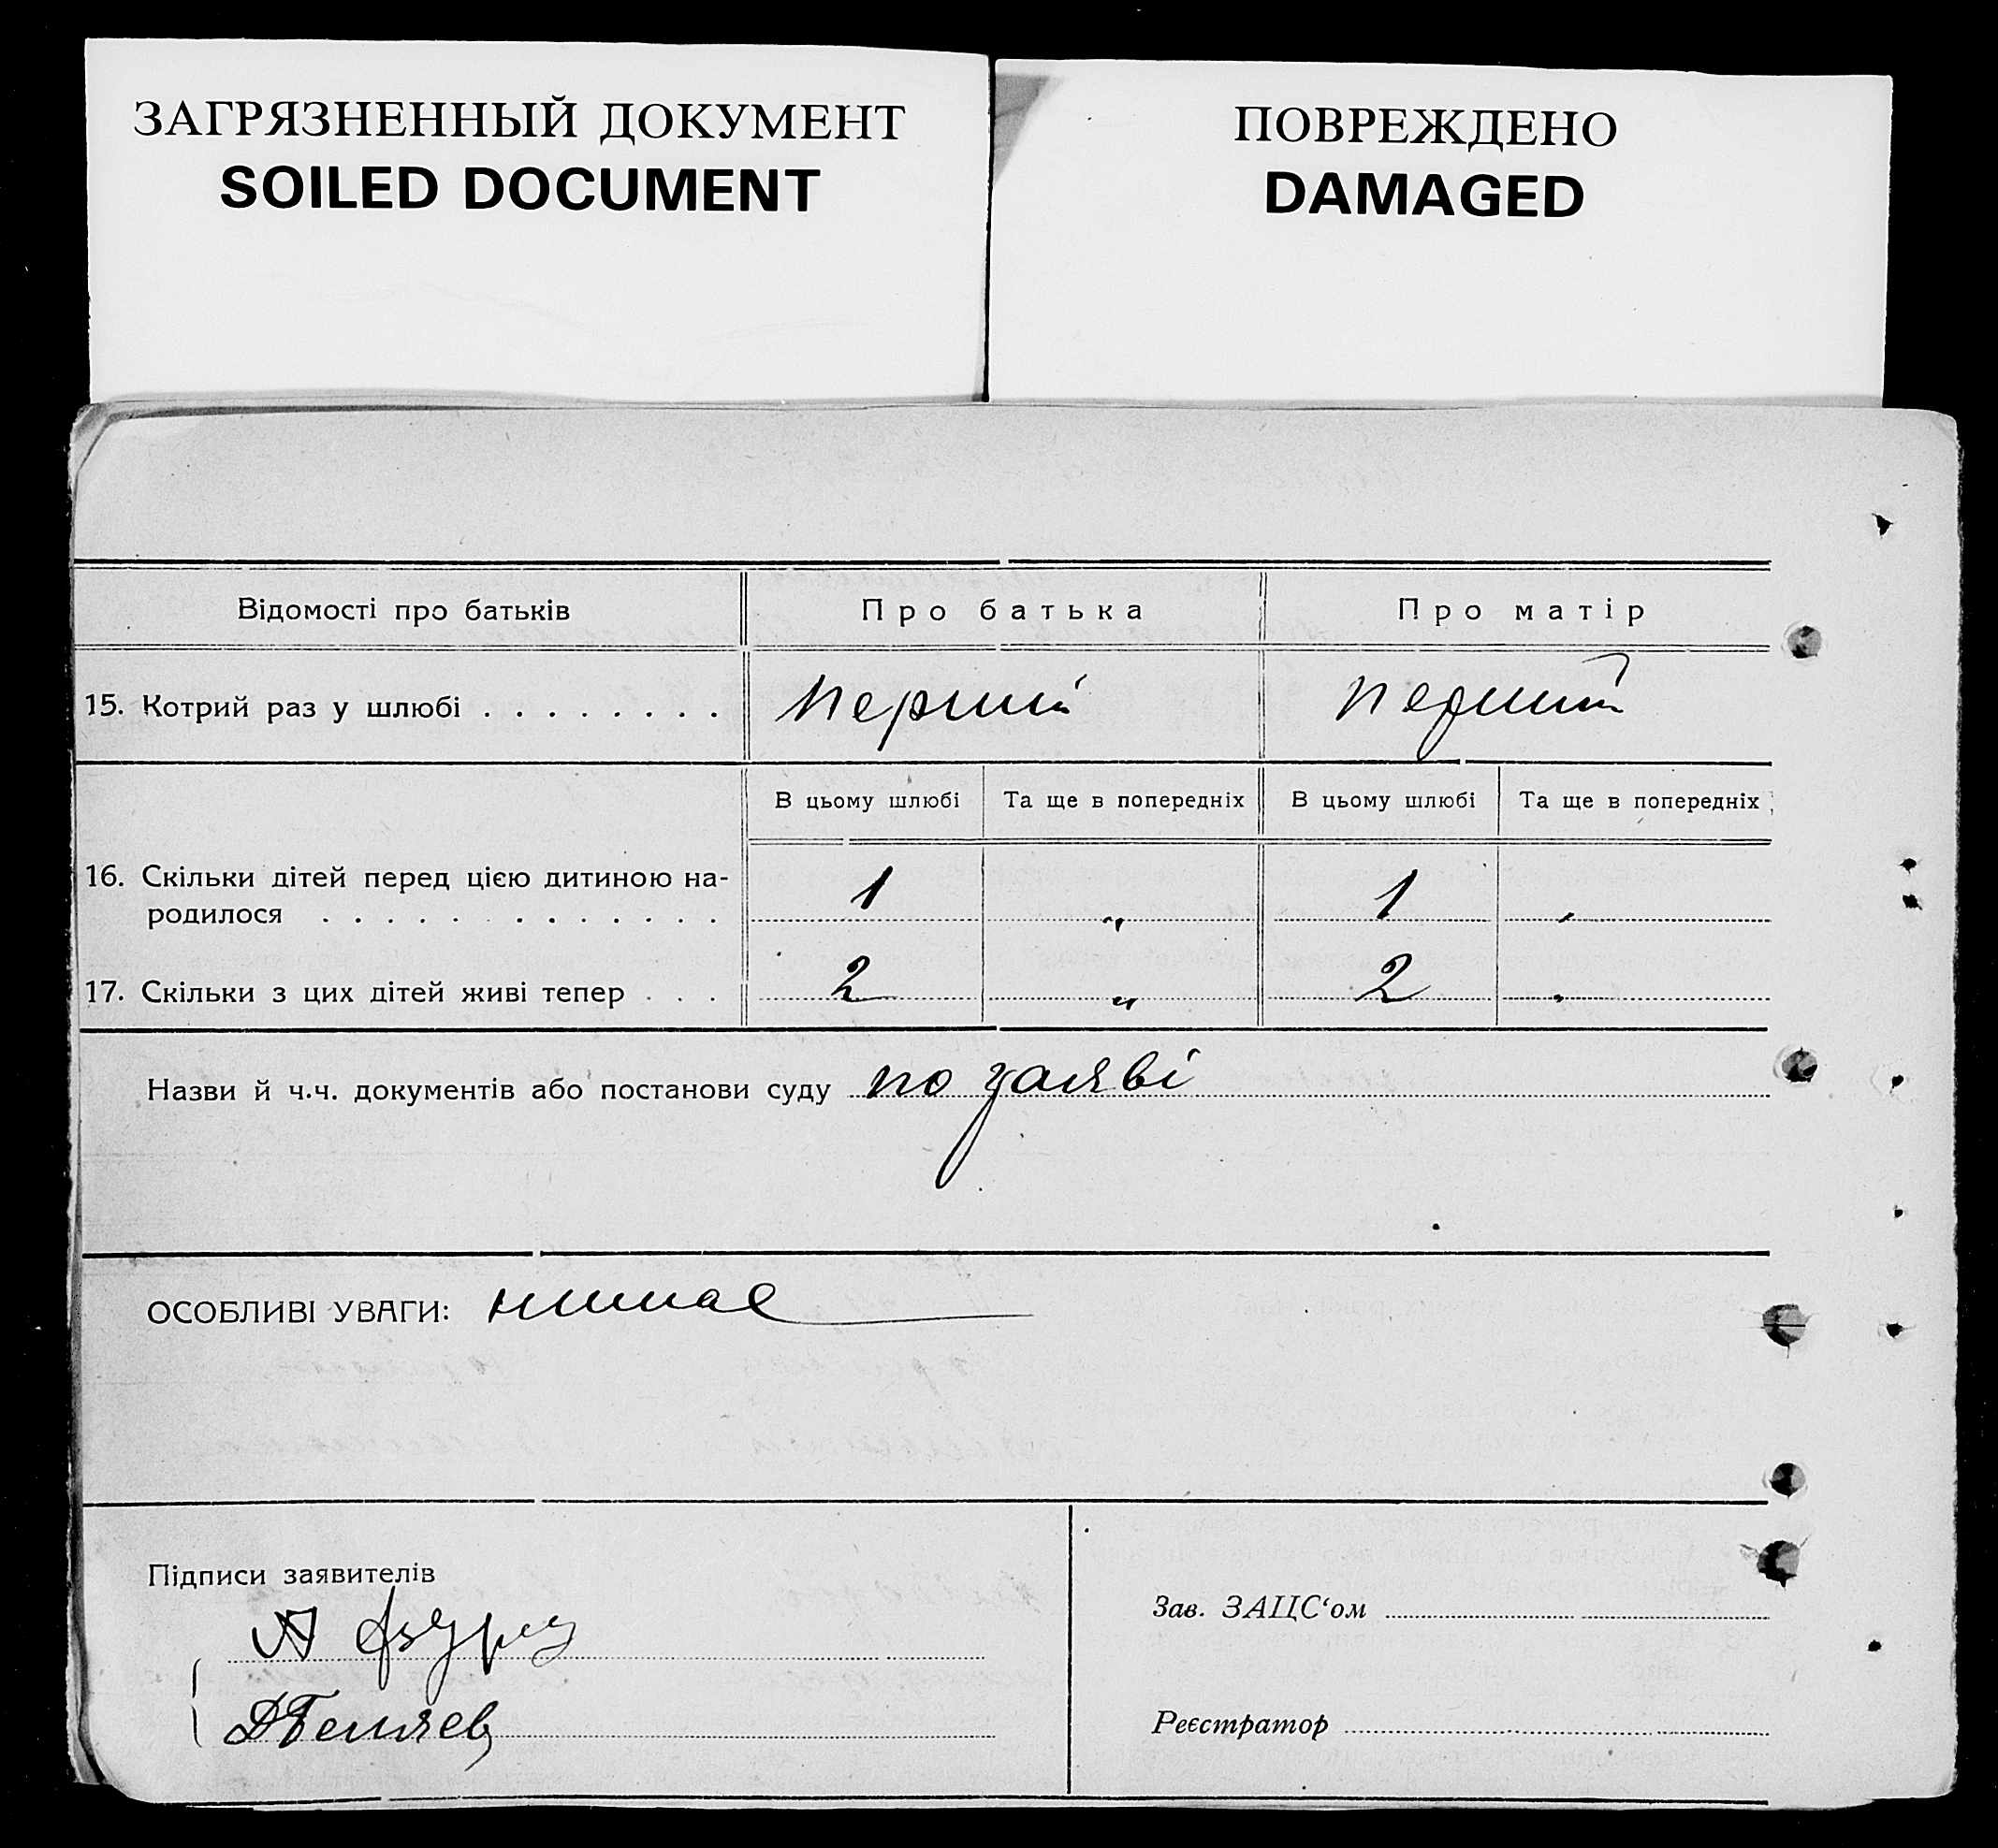 ЗАГРЯЗНЕННЫЙ ДОКУМЕНТ
SOILED DOCUMENT
ПОВРЕЖДЕНО
DAMAGED
Відомості про батьків Про батька Про матір
15. Котрий раз у шлюбі . . . . . . . . перший перший
В цьому шлюбі Та ще в попередніх В цьому шлюбі Та ще в попередніх
16. Скільки дітей перед цією дитиною на-
родилося . . . . . . . . . . . . . 1 „ 1 „
17. Скільки з цих дітей живі тепер . . . 2 „ 2 „
Назви й ч.ч. документів або постанови суду по заяві
ОСОБЛИВІ УВАГИ: нимае
Підписи заявителів
Зав. ЗАЦС‘ом
ДБеляев
Реєстратор